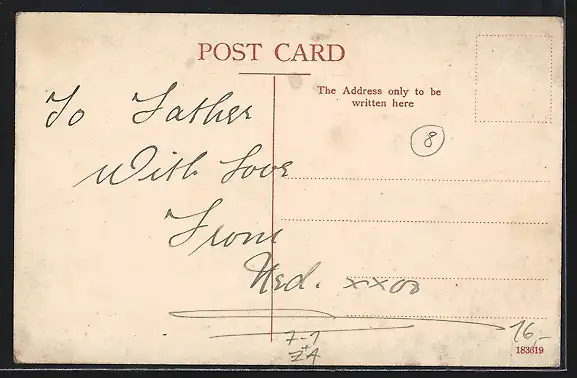 POST CARD
The Address only to be
written here
To Father
8
With Love
From
Ned. xxoo
7-1
ZA
16,-
183619